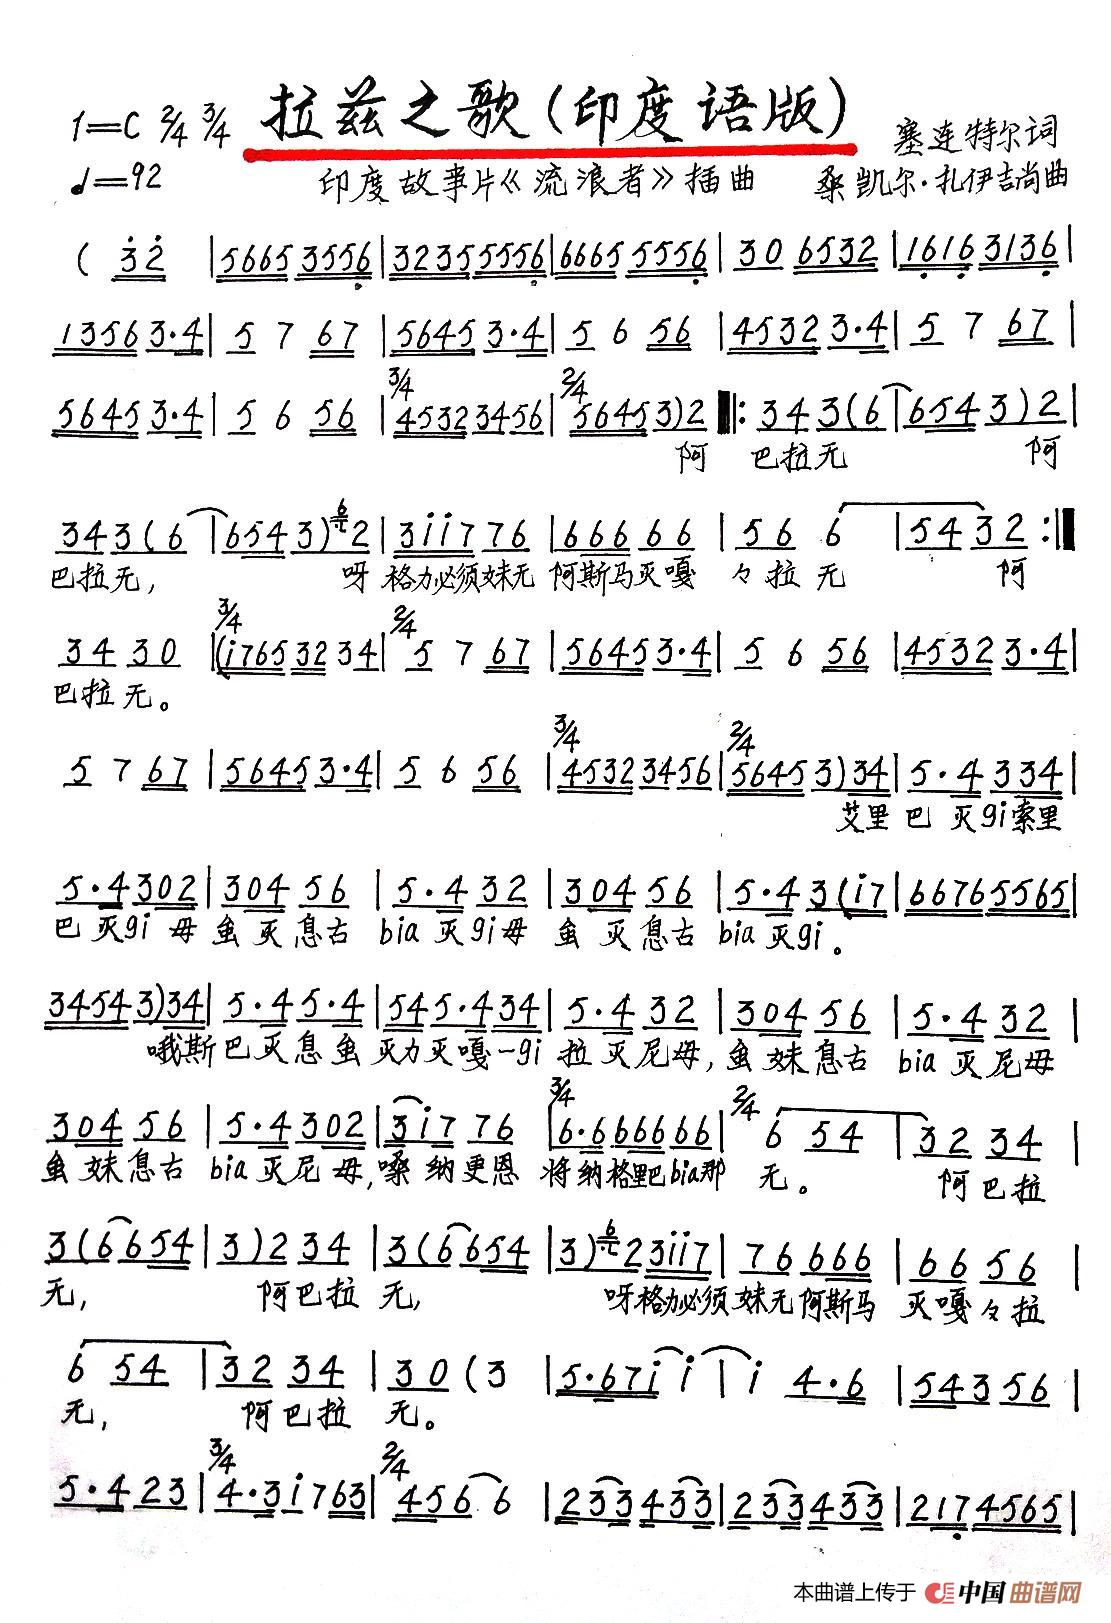 拉兹之歌(印度语版)
1=C 2/4 3/4
♩=92
塞连特尔词
印度故事片《流浪者》插曲
桑凯尔·扎伊吉尚曲
( 3 2 | 5665 3556 | 3235 5556 | 6665 5556 | 30 6532 | 1616 3136 |
1356 3·4 | 5 7 67 | 5645 3·4 | 5 6 56 | 4532 3·4 | 5 7 67 |
5645 3·4 | 5 6 56 | 3/4 4532 3456 | 2/4 5645 3) 2 ‖: 34 3(6 | 6543) 2 |
阿 巴拉无 阿
343(6 | 6543) 2 | 3ii7 76 | 666 66 | 56 6 | 54 32 :‖
巴拉无, 呀 格力必须妹无 阿斯马灭嘎 々拉无 阿
34 30 | 3/4 (i765 32 34 | 2/4 5 7 67 | 5645 3·4 | 5 6 56 | 4532 3·4 |
巴拉无。
5 7 67 | 5645 3·4 | 5 6 56 | 3/4 4532 3456 | 2/4 5645 3) 34 | 5·4 334 |
艾里 巴 灭gi索里
5·4 302 | 304 56 | 5·4 32 | 304 56 | 5·4 3(i7 | 6676 5565 |
巴 灭gi 母 鱼 灭 息古 bia 灭gi母 鱼 灭 息古 bia 灭gi。
3454 3) 34 | 5·4 5·4 | 54 5·4 34 | 5·4 32 | 304 56 | 5·4 32 |
哦斯 巴灭息鱼 灭力灭嘎一gi 拉灭尼母, 鱼妹息古 bia灭尼母
304 56 | 5·4 302 | 3i7 76 | 3/4 6·6 6666 66 | 2/4 6 54 | 32 34 |
鱼妹息古 bia灭尼母, 嗓纳更恩 将纳格里巴bia那 无。 阿巴拉
3(6 654 | 3) 2 34 | 3(6 654 | 3) 2 3ii7 | 76 666 | 66 56 |
无, 阿巴拉 无, 呀格力必须 妹无阿斯马 灭嘎々拉
6 54 | 32 34 | 30 (3 | 5·67i i | i 4·6 | 543 56 |
无, 阿巴拉 无。
5·4 23 | 3/4 4·3 i7 63 | 2/4 456 6 | 233 433 | 233 433 | 217 4565 |
本曲谱上传于 中国曲谱网